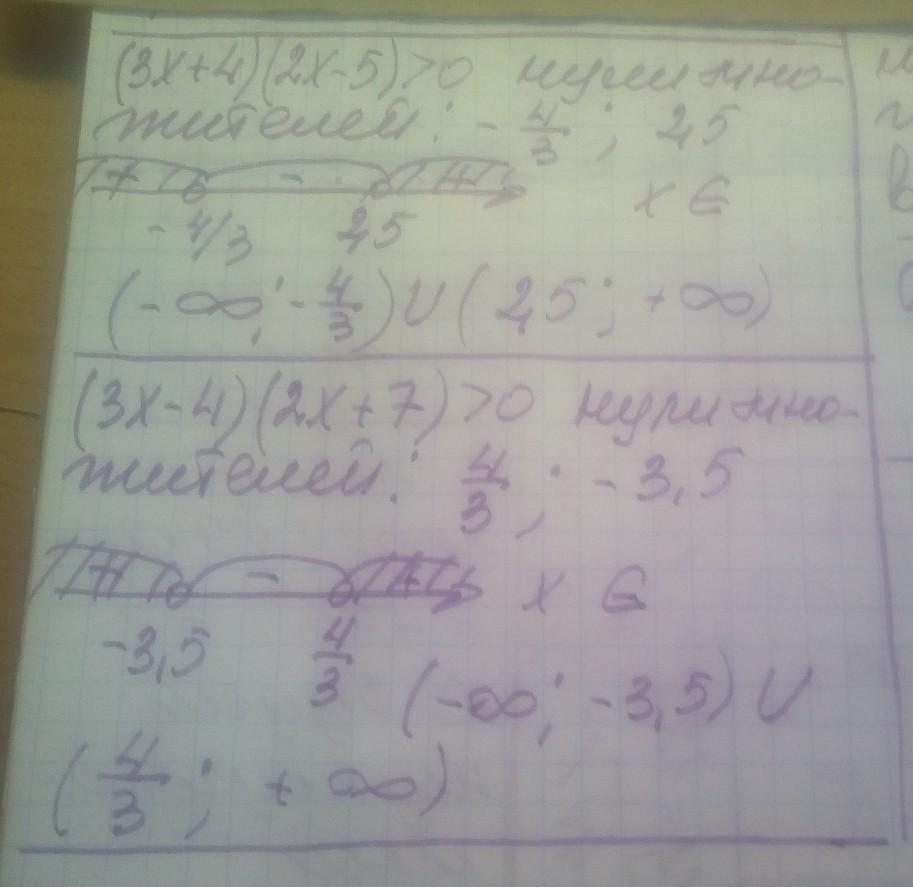 (3x+4)(2x-5)>0 нули мно-
жителей: -4/3; 2,5
+ - +
-4/3 2,5 x ∈
(-∞; -4/3) ∪ (2,5; +∞)
(3x-4)(2x+7)>0 нули мно-
жителей: 4/3; -3,5
+ - + x ∈
-3,5 4/3
(-∞; -3,5) ∪
(4/3; +∞)